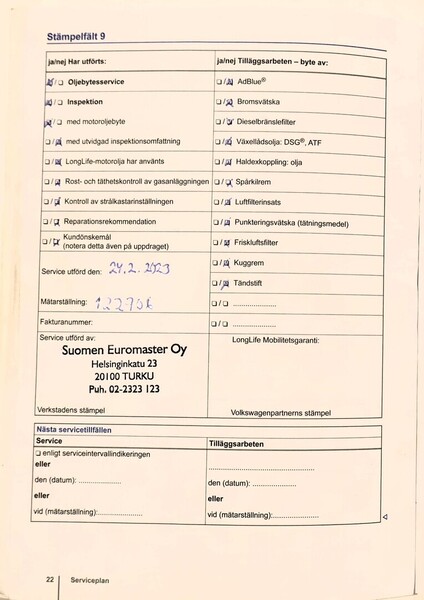 Stämpelfält 9
ja/nej Har utförts:
☒/☐ Oljebytesservice
☒/☐ Inspektion
☒/☐ med motoroljebyte
☐/☒ med utvidgad inspektionsomfattning
☐/☒ LongLife-motorolja har använts
☐/☒ Rost- och täthetskontroll av gasanläggningen
☐/☒ Kontroll av strålkastarinställningen
☐/☒ Reparationsrekommendation
☐/☒ Kundönskemål
(notera detta även på uppdraget)
Service utförd den: 24.2.2023
Mätarställning:
Fakturanummer:
Service utförd av:
Suomen Euromaster Oy
Helsinginkatu 23
20100 TURKU
Puh. 02-2323 123
Verkstadens stämpel
ja/nej Tilläggsarbeten – byte av:
☐/☒ AdBlue®
☐/☒ Bromsvätska
☐/☒ Dieselbränslefilter
☐/☒ Växellådsolja: DSG®, ATF
☐/☒ Haldexkoppling: olja
☐/☒ Spärkilrem
☐/☒ Luftfilterinsats
☐/☒ Punkteringsvätska (tätningsmedel)
☐/☒ Friskluftsfilter
☐/☒ Kuggrem
☐/☒ Tändstift
☐/☐ ................
☐/☐ ................
LongLife Mobilitetsgaranti:
Volkswagenpartnerns stämpel
Nästa servicetillfällen
Service
☐ enligt serviceintervallindikeringen
eller
den (datum): ................
eller
vid (mätarställning):................
Tilläggsarbeten
................
den (datum): ................
eller
vid (mätarställning):................
22
Serviceplan